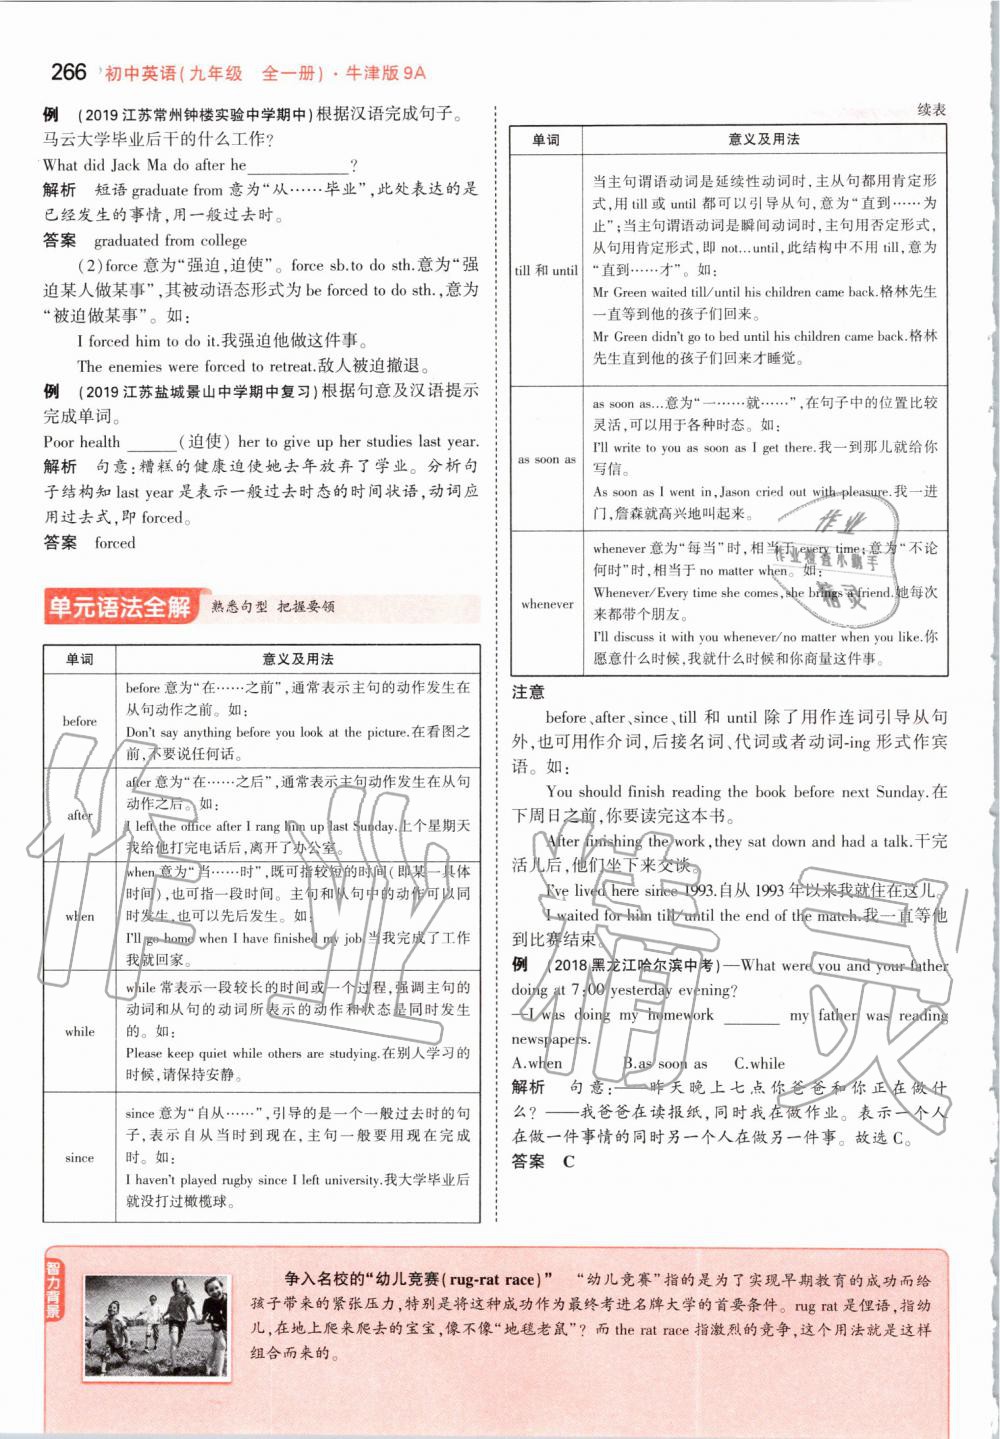 266 初中英语(九年级 全一册)·牛津版9A
例 (2019江苏常州钟楼实验中学期中)根据汉语完成句子。
马云大学毕业后干的什么工作?
What did Jack Ma do after he ____________?
解析 短语graduate from意为“从……毕业”,此处表达的是
已经发生的事情,用一般过去时。
答案 graduated from college
(2)force意为“强迫,迫使”。force sb.to do sth.意为“强
迫某人做某事”,其被动语态形式为be forced to do sth.,意为
“被迫做某事”。如:
I forced him to do it.我强迫他做这件事。
The enemies were forced to retreat.敌人被迫撤退。
例 (2019江苏盐城景山中学期中复习)根据句意及汉语提示
完成单词。
Poor health ______ (迫使) her to give up her studies last year.
解析 句意:糟糕的健康迫使她去年放弃了学业。分析句
子结构知last year是表示一般过去时态的时间状语,动词应
用过去式,即forced。
答案 forced
单元语法全解 熟悉句型 把握要领
单词 意义及用法
before
before意为“在……之前”,通常表示主句的动作发生在
从句动作之前。如:
Don't say anything before you look at the picture.在看图之
前,不要说任何话。
after
after意为“在……之后”,通常表示主句动作发生在从句
动作之后。如:
I left the office after I rang him up last Sunday.上个星期天
我给他打完电话后,离开了办公室。
when
when意为“当……时”,既可指较短的时间(即某一具体
时间),也可指一段时间。主句和从句中的动作可以同
时发生,也可以先后发生。如:
I'll go home when I have finished my job.当我完成了工作
我就回家。
while
while常表示一段较长的时间或一个过程,强调主句的
动词和从句的动词所表示的动作和状态是同时发生
的。如:
Please keep quiet while others are studying.在别人学习的
时候,请保持安静。
since
since意为“自从……”,引导的是一个一般过去时的句
子,表示自从当时到现在,主句一般要用现在完成
时。如:
I haven't played rugby since I left university.我大学毕业后
就没打过橄榄球。
续表
单词 意义及用法
till和until
当主句谓语动词是延续性动词时,主从句都用肯定形
式,用till或until都可以引导从句,意为“直到……为
止”;当主句谓语动词是瞬间动词时,主句用否定形式,
从句用肯定形式,即not...until,此结构中不用till,意为
“直到……才”。如:
Mr Green waited till/until his children came back.格林先生
一直等到他的孩子们回来。
Mr Green didn't go to bed until his children came back.格林
先生直到他的孩子们回来才睡觉。
as soon as
as soon as...意为“一……就……”,在句子中的位置比较
灵活,可以用于各种时态。如:
I'll write to you as soon as I get there.我一到那儿就给你
写信。
As soon as I went in,Jason cried out with pleasure.我一进
门,詹森就高兴地叫起来。
whenever
whenever意为“每当”时,相当于every time;意为“不论
何时”时,相当于no matter when。如:
Whenever/Every time she comes,she brings a friend.她每次
来都带个朋友。
I'll discuss it with you whenever/no matter when you like.你
愿意什么时候,我就什么时候和你商量这件事。
注意
before、after、since、till和until除了用作连词引导从句
外,也可用作介词,后接名词、代词或者动词-ing形式作宾
语。如:
You should finish reading the book before next Sunday.在
下周日之前,你要读完这本书。
After finishing the work,they sat down and had a talk.干完
活儿后,他们坐下来交谈。
I've lived here since 1993.自从1993年以来我就住在这儿。
I waited for him till/until the end of the match.我一直等他
到比赛结束。
例 (2018黑龙江哈尔滨中考)—What were you and your father
doing at 7:00 yesterday evening?
—I was doing my homework ______ my father was reading
newspapers.
A.when B.as soon as C.while
解析 句意:——昨天晚上七点你爸爸和你正在做什
么?——我爸爸在读报纸,同时我在做作业。表示一个人
在做一件事情的同时另一个人在做另外一件事。故选C。
答案 C
智力背景
争入名校的“幼儿竞赛(rug-rat race)” “幼儿竞赛”指的是为了实现早期教育的成功而给
孩子带来的紧张压力,特别是将这种成功作为最终考进名牌大学的首要条件。rug rat是俚语,指幼
儿,在地上爬来爬去的宝宝,像不像“地毯老鼠”?而the rat race指激烈的竞争,这个用法就是这样
组合而来的。
作业精灵
作业
作业检查小助手
精灵